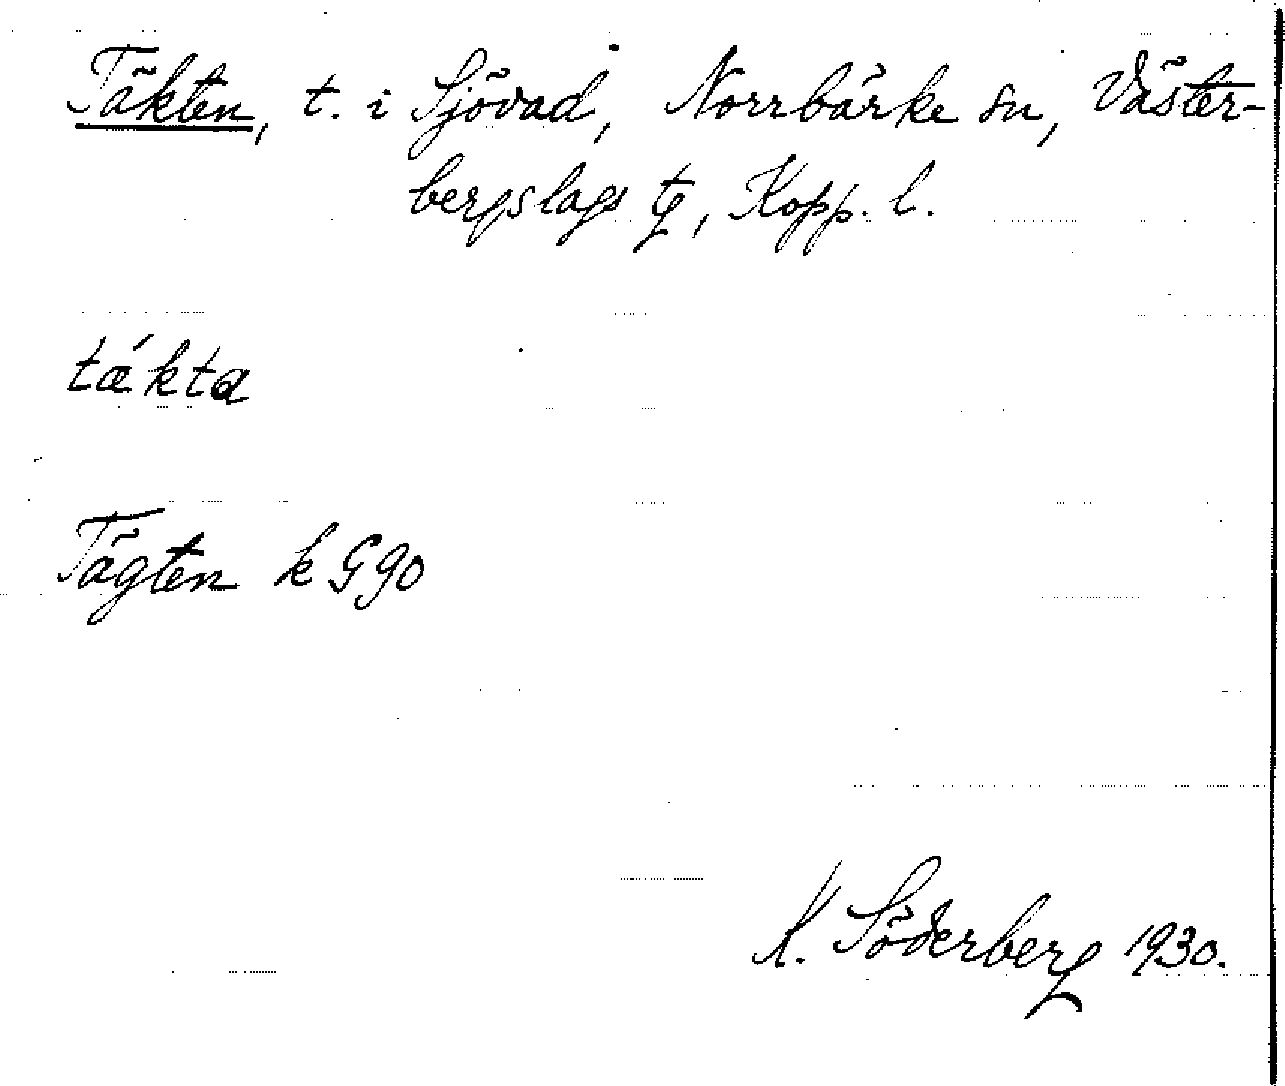 Täkten, t. i Sjövad, Norrbärke sn, Väster-
bergslags tg, Kopp. l.
tǽkta
Tägten k G 90
K. Söderberg 1930.